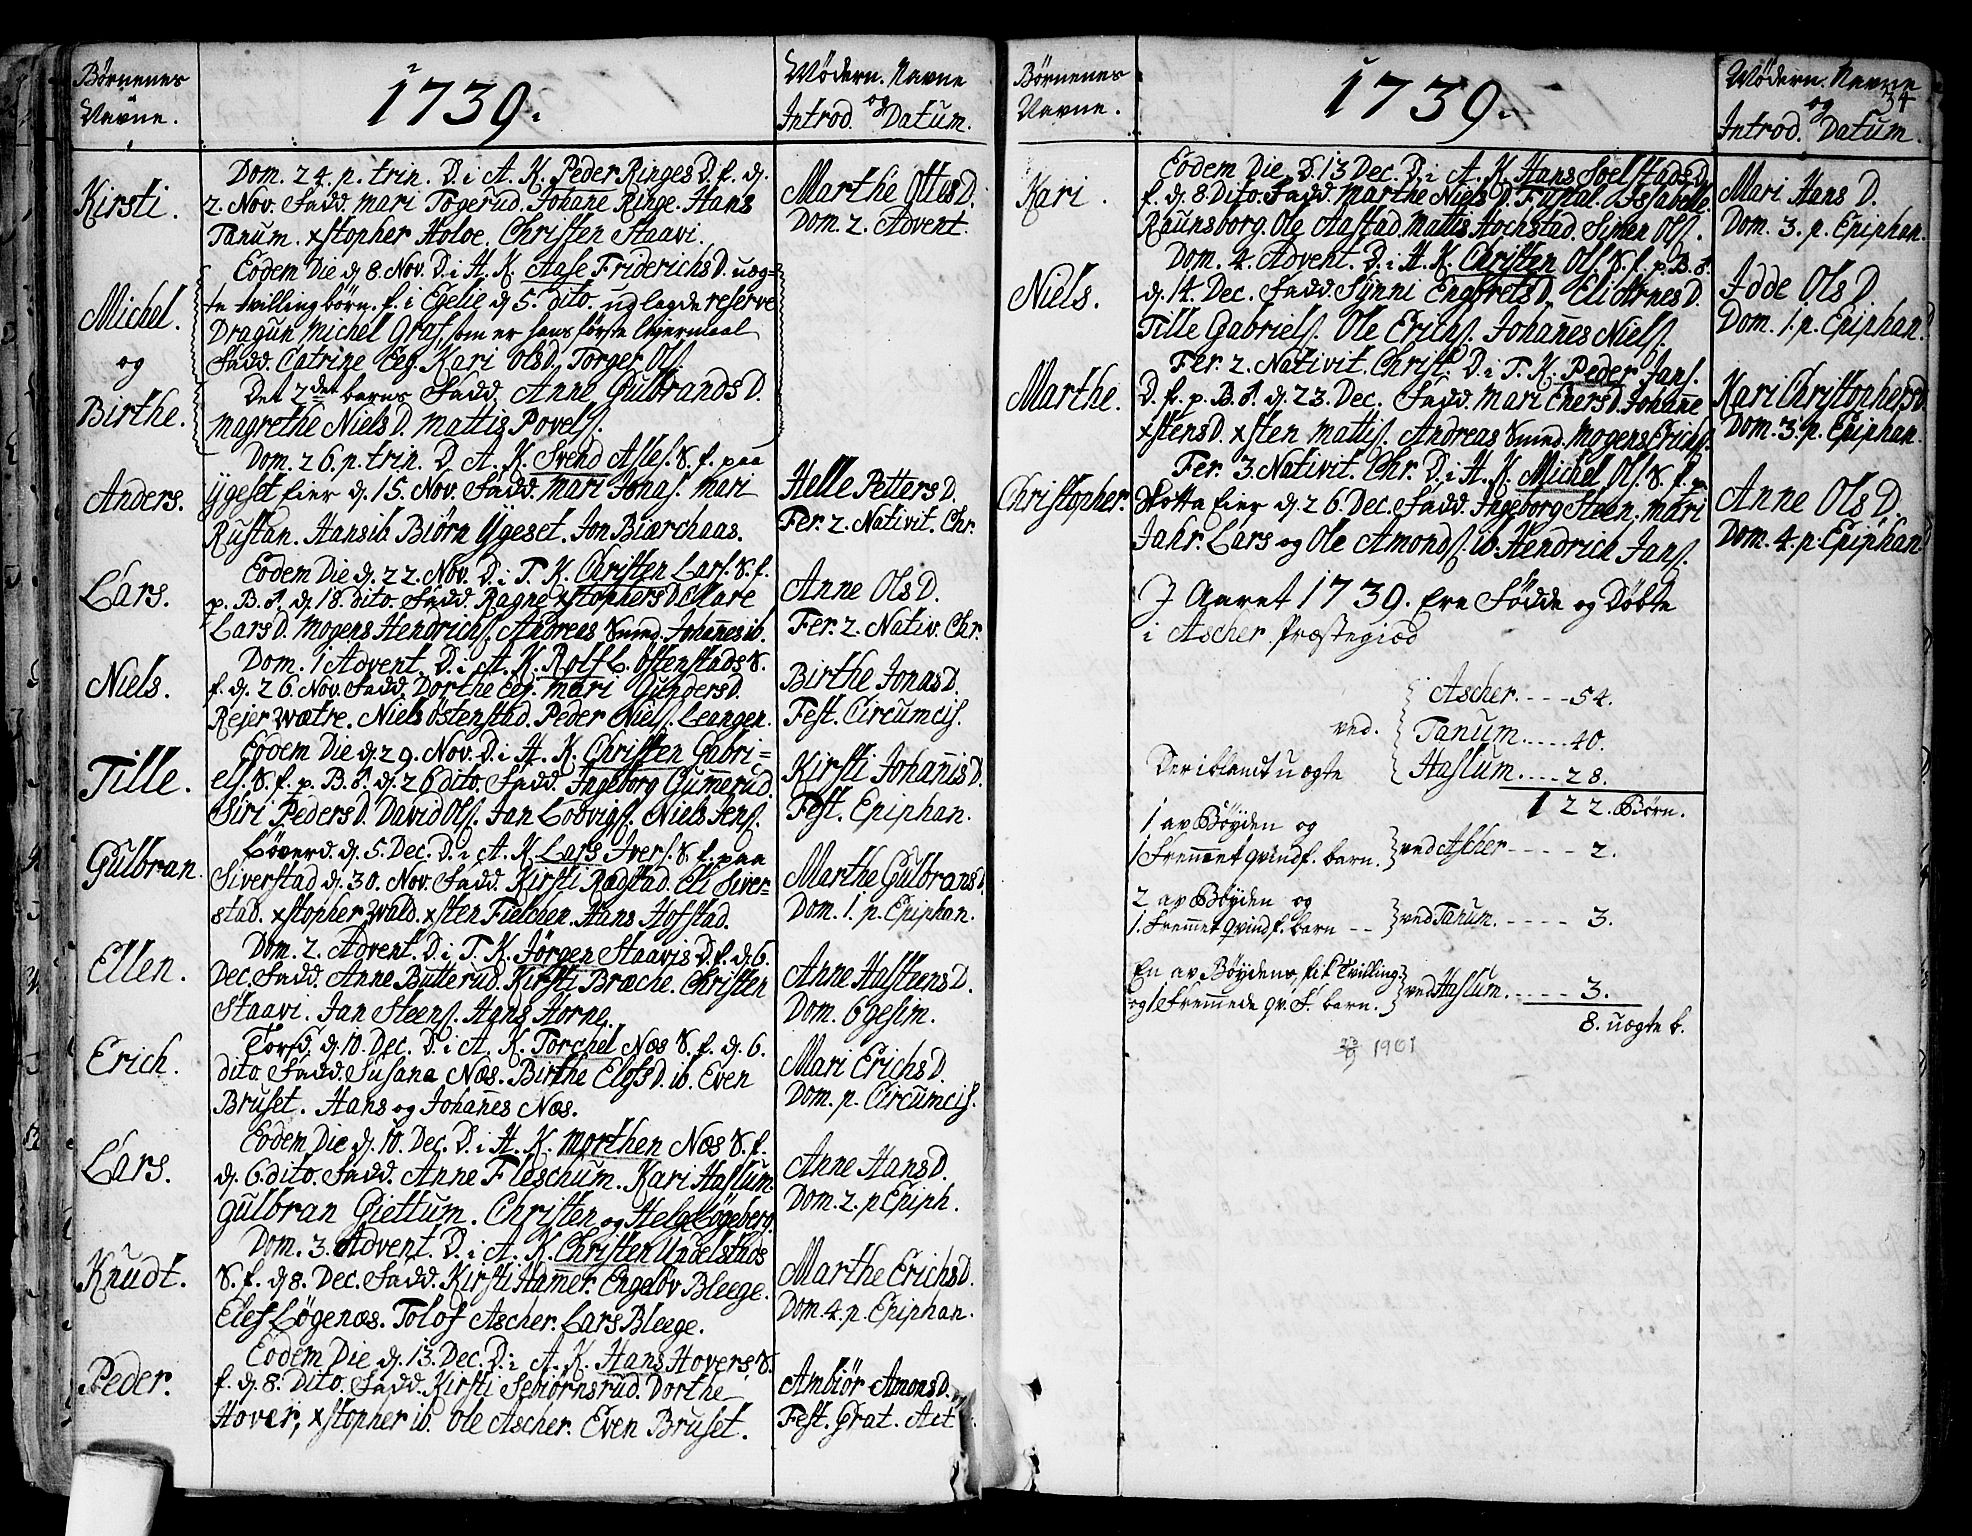 Børnenes
Navne.
1739.
Mødern. Navne
og
Introd. Datum.
Kirsti.
Dom. 24. p. trin. D. i A. K. Peder Ringes D. f. d.
2. Nov. Fadd. Mari Togerud. Johane Ringe. Hans
Tanum. xstopher Holoe. Christen Staavi.
Marthe Ottes D.
Dom. 2. Advent.
Michel.
og
Birthe.
Eodem Die d. 8. Nov. D. i H. K. Aase Friderichs D. uæg-
te tvilling børn. f. i Egelie d. 5. dito. udlagde reserve
Dragun Michel Graf, som er hans første leiermaal
Fadd. Catrine Eeg. Kari Ols D. Torger Ols.
Det 2det barns Fadd. Anne Gulbrands D.
Magrethe Niels D. Mattis Povels.
Anders.
Dom. 26. p. trin. D. A. K. Svend Asles. S. f. paa
Ygeset Eier d. 15. Nov. Fadd. Mari Jonas. Mari
Rustan. Hans ib. Biørn Ygeset. Jon Biærchaas.
Helle Petters D.
Fer. 2. Nativit. Chr.
Lars.
Eodem Die d. 22. Nov. D. i T. K. Christen Lars. S. f.
p. B. S. d. 18. dito. Fadd. Ragne xstophers D. Mare
Lars D. Mogens Hendrichs. Andreas Smed. Johannes ib.
Anne Ols D.
Fer. 2. Nativ. Chr.
Niels.
Dom. 1 Advent. D. i A. K. Rolf L. Østenstads S.
f. d. 26. Nov. Fadd. Dorthe Eeg. Mari Gunders D.
Rejer Wætre. Niels Østenstad. Peder Niels. Leangen.
Birthe Jonas D.
Fest. Circumcis.
Tille.
Eodem Die d. 29. Nov. D. i H. K. Christen Gabri-
els. S. f. p. B. S. d. 26 dito. Fadd. Ingeborg Gummerud.
Siri Peders D. David Ols. Jan Lodvigs. Niels Jens.
Kirsti Johannis D.
Fest. Epiphan.
Gulbran.
Løverd. d. 5. Dec. D. i A. K. Lars Ivers. S. f. paa
Siverstad d. 30. Nov. Fadd. Kirsti Rødstad. Eli Siver-
stad. xstopher Wald. xsten Fielchen. Hans Hofstad.
Marthe Gulbrans D.
Dom. 1. p. Epiphan.
Ellen.
Dom. 2. Advent. D. i T. K. Jørgen Staavis D. f. d. 6.
Dec. Fadd. Anne Butterud. Kirsti Bræche. Christen
Staavi. Jan Steens. Hans Horne.
Anne Halsteens D.
Dom. 6gesim.
Erich.
Torsd. d. 10. Dec. D. i A. K. Torchel Næs S. f. d. 6.
dito. Fadd. Susana Næs. Birthe Elefs D. ib. Even
Bruset. Hans og Johannes Næs.
Mari Erichs D.
Dom. p. Circumcis.
Lars.
Eodem Die d. 10. Dec. D. i H. K. Morthen Næs S. f.
d. 6. dito. Fadd. Anne Fleschum. Kari Haslum.
Gulbran Giettum. Christen og Helge Løgeberg.
Anne Hans D.
Dom. 2. p Epiph.
Knudt.
Dom. 3. Advent. D. i A. K. Christen Undelstads
S. f. d. 8. Dec. Fadd. Kirsti Hamer. Engebor Bleege.
Elef Løgenæs. Tolof Ascher. Lars Bleege.
Marthe Erichs D.
Dom. 4. p. Epiphan.
Peder.
Eodem Die d. 13. Dec. D. i A. K. Hans Hovers S.
f. d. 8. Dito. Fadd. Kirsti Sebiørnsrud. Dorthe
Hover, xstopher ib. Ole Ascher. Even Bruset.
Ambiør Amons D.
Fest. Grat. Act
Børnenes
Navne.
1739.
Mødern. Navne
34
og
Introd. Datum.
Kari.
Eodem Die D. 13 Dec. D. i A. K. Hans Soelstads D.
f. d. 8. Dito. Fadd. Marthe Niels D. Fustal. Issabelle
Raunsborg. Ole Aastad. Mattis Hochstad. Simen Ols.
Mari Hans D.
Dom. 3. p. Epiphan.
Niels.
Dom. 4. Advent. D. i H. K. Christen Ols. S. f. p. B. S.
d. 14. Dec. Fadd. Synni Engbrets D. Eli Arnes D.
Tille Gabriels. Ole Erichs. Johannes Niels.
Idde Ols D.
Dom. 1. p. Epiphan.
Marthe.
Fer. 2. Nativit. Christ. D. i T. K. Peder Jans.
D. f. p. B. S. d. 23. Dec. Fadd. Mari Ehers D. Johanne
xstens D. xsten Mattis. Andreas Smed. Mogens Erichs.
Kari Christophers D.
Dom. 3. p. Epiphan.
Christopher.
Fer. 3. Nativit. Chr. D. i H. K. Michel Ols. S. f. p.
Stotta Eier d. 26. Dec. Fadd. Ingeborg Steen. Mari
Jahr. Lars og Ole Amonds. ib. Hendrich Jans.
Anne Ols D.
Dom. 4. p. Epiphan
I Aaret 1739. Ere Fødde og Døbte
i Ascher Præstegiæd
ved.
Ascher.----54.
Tanum.....40.
Haslum....28.
Deriblandt uægte
122. Børn.
1 av Bøyden og
1 Fremmet qvindf. barn. } ved Ascher----- 2.
2 av Bøyden og
1. Fremmet qvindf. barn -- } ved Tanum.----- 3.
En av Bøydens, fik Tvilling
og 1 Fremmede qv. F. barn. } ved Haslum.----- 3.
8. uægte b.
23/9 1901